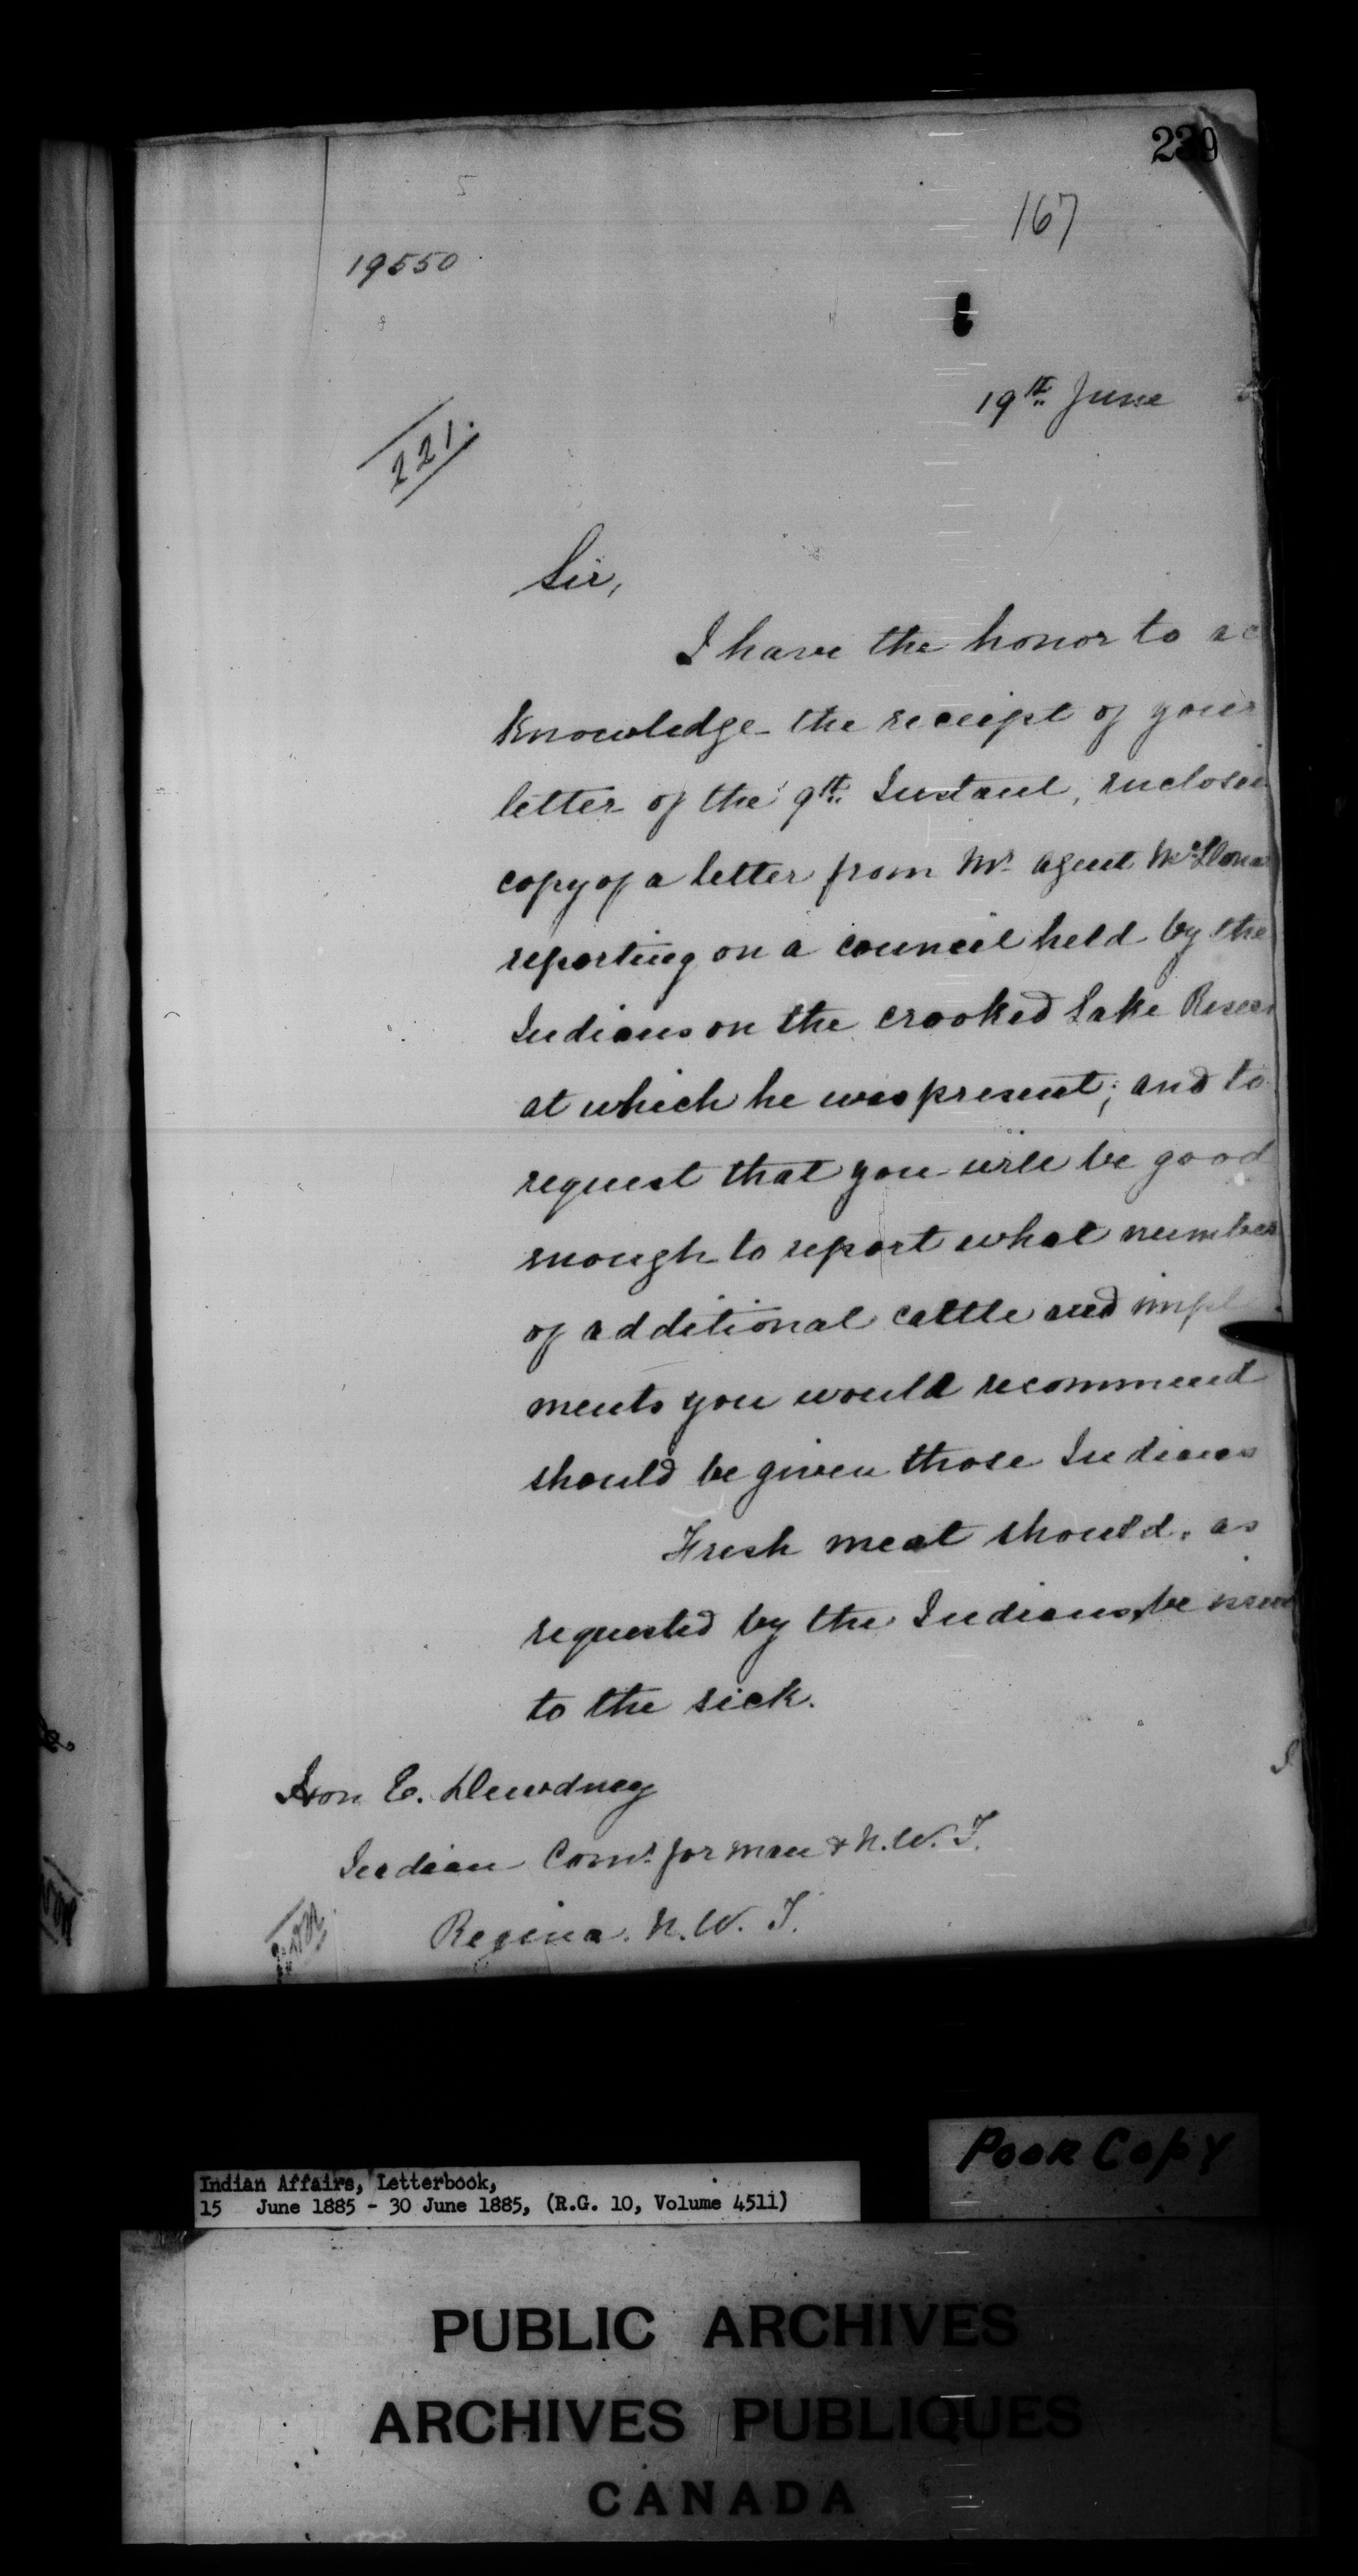 239
167
19550
19th June
221.
Sir,
I have the honor to ac
knowledge the receipt of your
letter of the 9th Instant, enclosin
copy of a letter from Mr Agent McDona
reporting on a council held by the
Indians on the Crooked Lake Reser
at which he was present; and to
request that you will be good
enough to report what number
of additional cattle and imple
ments you would recommend
should be given those Indians
Fresh meat should, as
requested by the Indians, be issu
to the sick.
Hon E. Dewdney
Indian Comr. for Man & N.W.T.
Regina. N.W.T.
Poor Copy
Indian Affairs, Letterbook,
15 June 1885 - 30 June 1885, (R.G. 10, Volume 4511)
PUBLIC ARCHIVES
ARCHIVES PUBLIQUES
CANADA